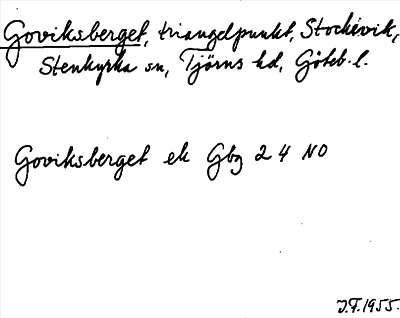 Goviksberget, triangelpunkt, Stockevik,
Stenkyrka sn, Tjörns hd, Göteb. l.
Goviksberget ek Gbg 24 NO
J.F. 1955.